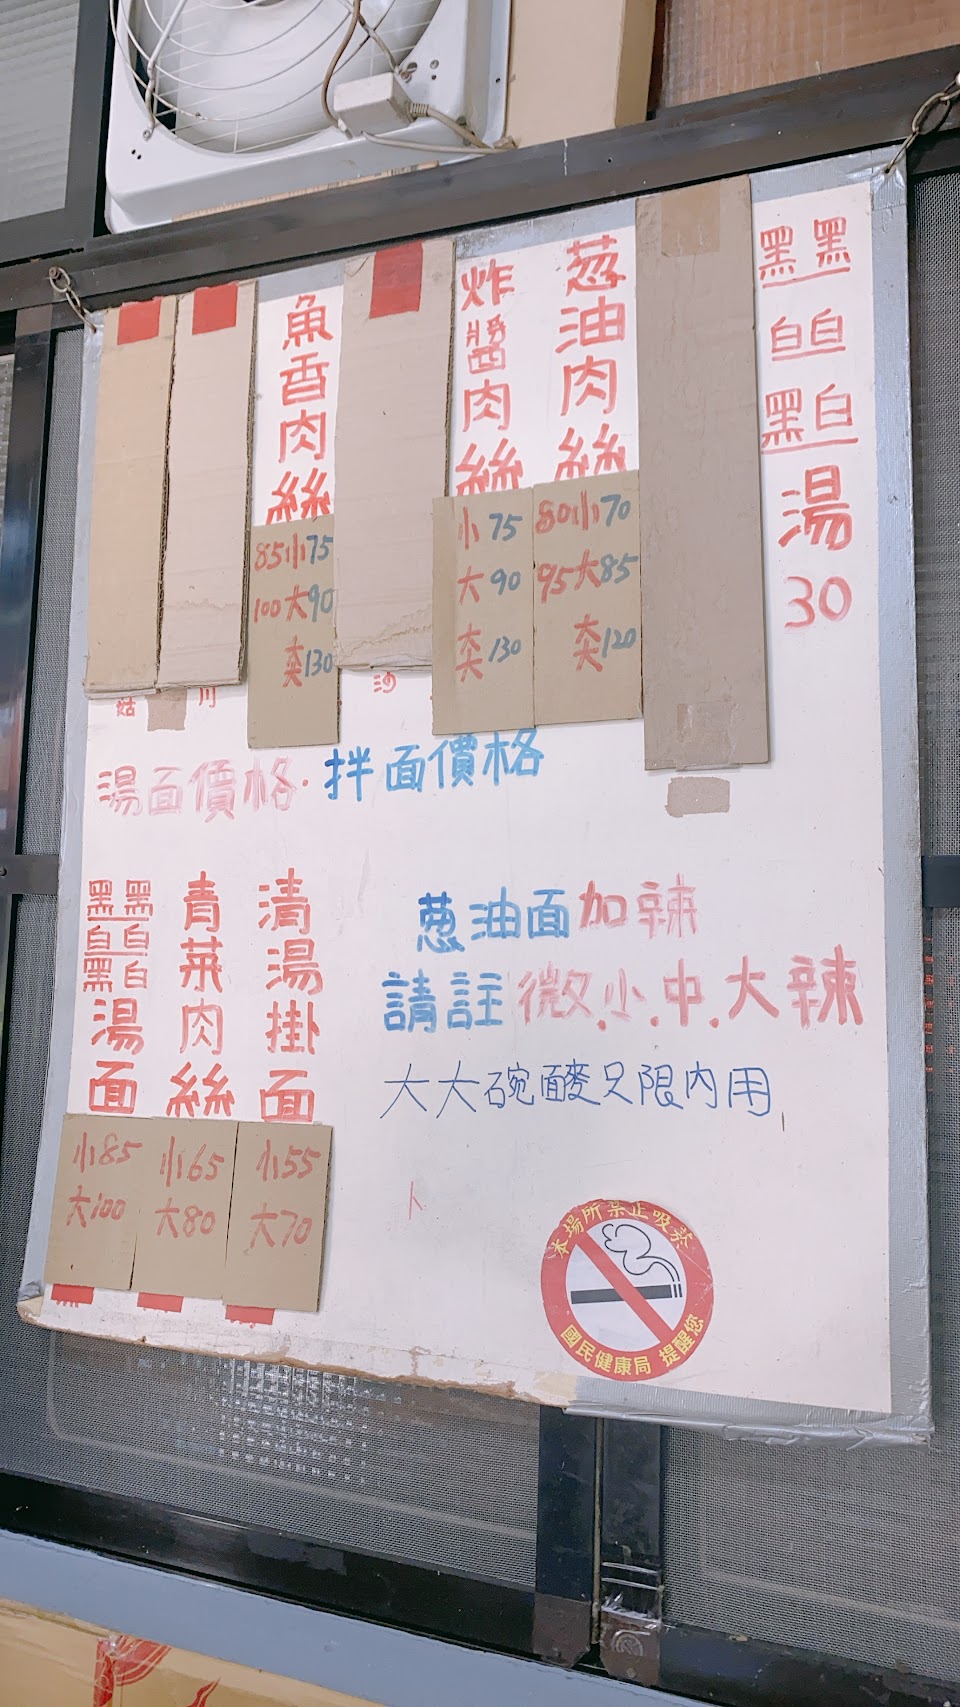 黑黑
白白
黑白
湯
30
蔥油肉絲
80小70
95大85
大大120
炸醬肉絲
小75
大90
大大130
魚香肉絲
85小75
100大90
大大130
沙
川
菇
湯面價格·拌面價格
清湯掛面
小55
大70
青菜肉絲
小65
大80
黑黑
白白
黑白
湯面
小85
大100
蔥油面加辣
請註微.小.中.大辣
大大碗酸只限內用
本場所禁止吸菸
國民健康局 提醒您